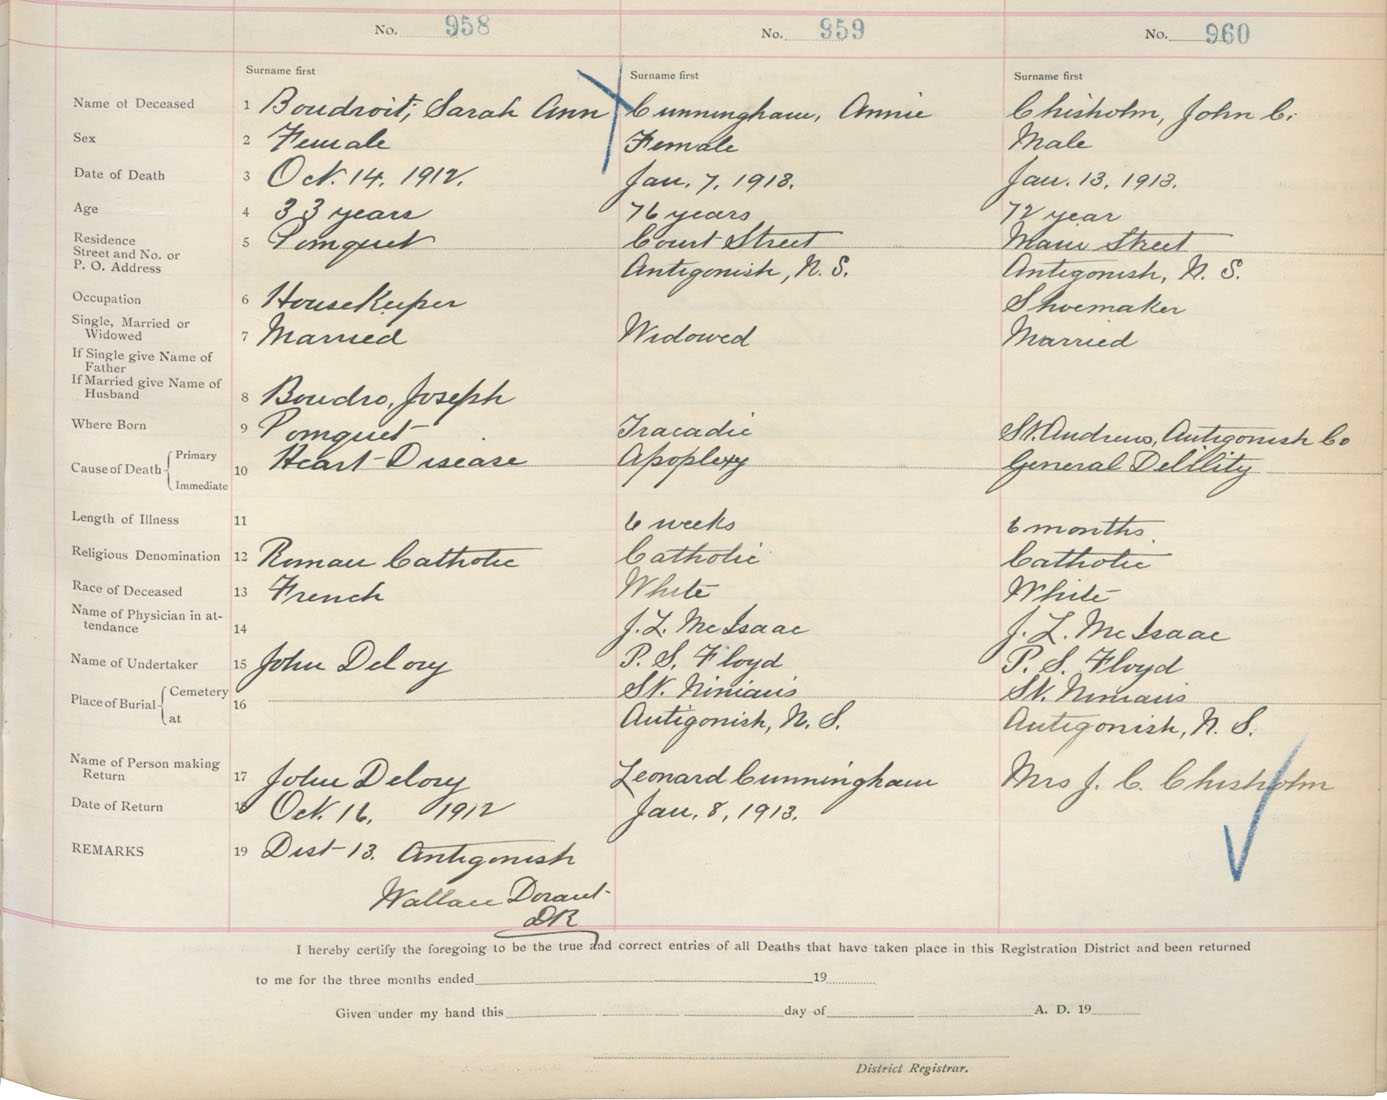 No. 958 No. 959 No. 960
Surname first Surname first Surname first
Name of Deceased 1 Boudroit, Sarah Ann Cunningham, Annie Chisholm, John C.
Sex 2 Female Female Male
Date of Death 3 Oct. 14. 1912. Jan. 7, 1913. Jan. 13, 1913.
Age 4 33 years 76 years 72 year
Residence Street and No. or P. O. Address 5 Pomquet Court Street Main Street
Antigonish, N. S. Antigonish, N. S.
Occupation 6 HouseKeeper Shoemaker
Single, Married or Widowed 7 Married Widowed Married
If Single give Name of Father
If Married give Name of Husband 8 Boudro, Joseph
Where Born 9 Pomquet Tracadie St. Andrews, Antigonish Co
Cause of Death Primary Immediate 10 Heart Disease Apoplexy General Debility
Length of Illness 11 6 weeks 6 months.
Religious Denomination 12 Roman Catholic Catholic Catholic
Race of Deceased 13 French White White
Name of Physician in attendance 14 J. L. McIsaac J. L. McIsaac
Name of Undertaker 15 John Delory P. S. Floyd P. S. Floyd
Place of Burial Cemetery at 16 St. Ninian's St. Ninian's
Antigonish, N. S. Antigonish, N. S.
Name of Person making Return 17 John Delory Leonard Cunningham Mrs J. C. Chisholm
Date of Return 18 Oct. 16. 1912 Jan. 8, 1913.
REMARKS 19 Dist 13. Antigonish
Wallace Dorant
DR
I hereby certify the foregoing to be the true and correct entries of all Deaths that have taken place in this Registration District and been returned
to me for the three months ended 19
Given under my hand this day of A. D. 19
District Registrar.